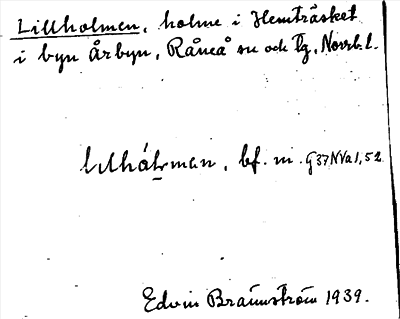 Lillholmen, holme i Hemträsket
i byn Årbyn, Råneå sn och tg, Norrb. l.
bf. m. G37NVa1,52
Edvin Brännström 1939.